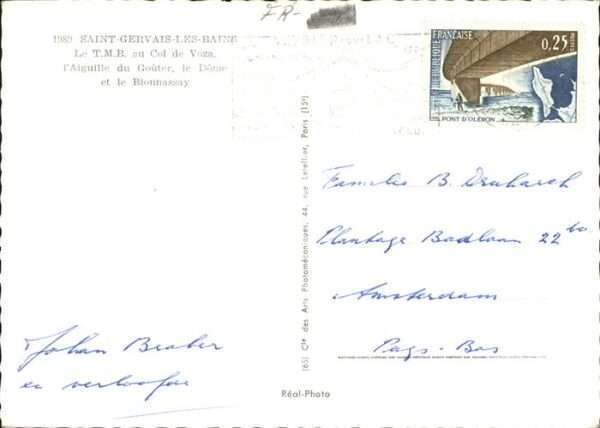 FR-
1989 SAINT-GERVAIS-LES-BAINS
Le T.M.B. au Col de Voza,
l'Aiguille du Goûter, le Dôme
et le Bionnassay
REPUBLIQUE FRANÇAISE
0,25
POSTES
PONT D'OLERON
(65) Cie des Arts Photomécaniques, 44, rue Letellier, Paris (15e)
Familie B.
Plantage Badlaan 22 bs
Amsterdam
Pays-Bas
Johan Braber
en verloofde
Réal-Photo